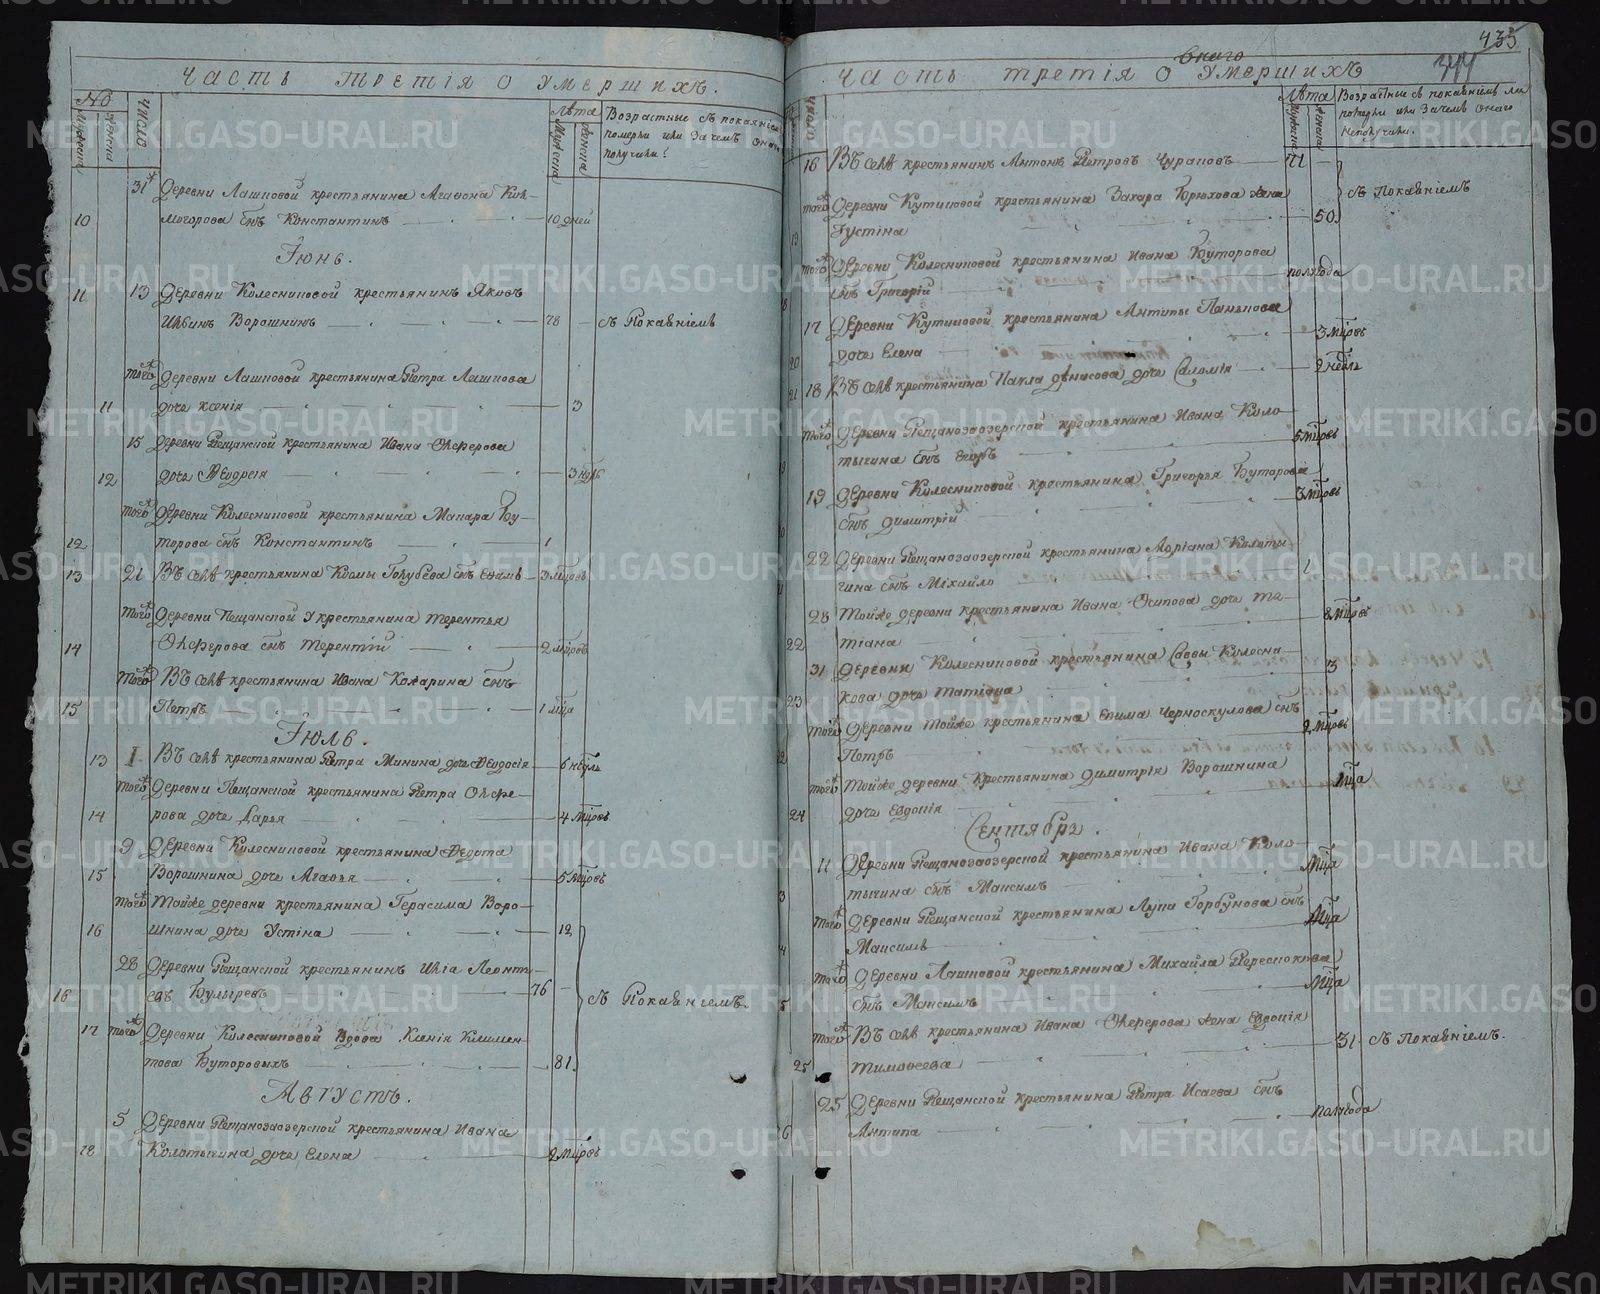 ЧАСТЬ ТРЕТІЯ О УМЕРШИХЪ.
№
число
Лѣта
Возрастные съ покаяніемъ
померли или зачемъ онаго
получили?
31 Деревни Лашповой крестьянина Агафона Кож-
10 могорова снъ Константинъ 10 дней
Іюнь.
11 13 Деревни Колесниковой крестьянинъ Яковъ
Ильинъ Ворошнинъ 78 съ Покаяніемъ
того Деревни Лашповой крестьянина Петра Лашпова
11 дочь Ксенія 3
15 Деревни Пещанской крестьянина Ивана
12 дочь Ѳеодосія 3 нѣдль
того Деревни Колесниковой крестьянина Макара Бу-
12 торова снъ Константинъ 1
13 21 Въ селѣ крестьянина Козмы Голубева снъ 3 мцовъ
того Деревни Пещанской крестьянина Терентья
14 снъ Терентій 2 мцовъ
того Въ селѣ крестьянина Ивана Кокарина снъ
15 Петръ 1 мца
Іюль.
13 1 Въ селѣ крестьянина Петра Минина дочь Ѳеодосія 6 нѣдль
того Деревни Пещанской крестьянина Петра
14 рова дочь Дарья 4 мцовъ
9 Деревни Колесниковой крестьянина Ѳедота
15 Ворошнина дочь Агафья 5 мцовъ
того Тойже деревни крестьянина Герасима Воро-
16 шнина дочь Устіна 12
28 Деревни Пещанской крестьянинъ Илія Леонть-
16 евъ Булыревъ 76 съ Покаяніемъ.
17 того Деревни Колесниковой вдова Ксенія Климен-
това Буторовыхъ 81
Августъ.
5 Деревни Пещанозаозерской крестьянина Ивана
18 Колотыгина дочь Елена 2 мцовъ
435
344
онаго
ЧАСТЬ ТРЕТІЯ О УМЕРШИХЪ
число
Лѣта
Возрастные съ покаяніемъ ли
померли или зачемъ онаго
неполучили.
16 Въ селѣ крестьянинъ Антонъ Петровъ Чураповъ 71
съ Покаяніемъ
того Деревни Кутиковой крестьянина Захара Брюхова жена
19 Іустіна 50
того Деревни Колесниковой крестьянина Ивана Буторова
18 снъ Григорій полгода
17 Деревни Кутиковой крестьянина Антипы Панькова
20 дочь Елена 3 мцовъ
21 18 Въ селѣ крестьянина Павла Денисова дочь Саломія 2 недль
того Деревни Пещанозаозерской крестьянина Ивана Коло-
тыгина снъ Егоръ 5 мцовъ
19 Деревни Колесниковой крестьянина Григорья Буторова
снъ Димитрій 3 мцовъ
22 Деревни Пещанозаозерской крестьянина Адріана Колоты-
гина снъ Міхайло 1
28 Тойже деревни крестьянина Ивана Осипова дочь Та-
22 тіана 8 мцовъ
31 Деревни Колесниковой крестьянина Саввы Колесни-
23 кова дочь Татіана 13
того Деревни тойже крестьянина Ефима Черноскулова снъ
Петръ 2 мцовъ
того Тойже деревни крестьянина Димитрія Ворошнина
24 дочь Евдокія мца
Сентябрь.
11 Деревни Пещанозаозерской крестьянина Ивана Коло-
тыгина снъ Максимъ мца
того Деревни Пещанской крестьянина Лупи Горбунова снъ
Максимъ мца
того Деревни Лашповой крестьянина Михайла
снъ Максимъ мца
того Въ селѣ крестьянина Ивана жена Евдокія
25 Тимофеева 31. съ Покаяніемъ.
25 Деревни Пещанской крестьянина Петра Исаева снъ
Антипа полгода
METRIKI.GASO-URAL.RU